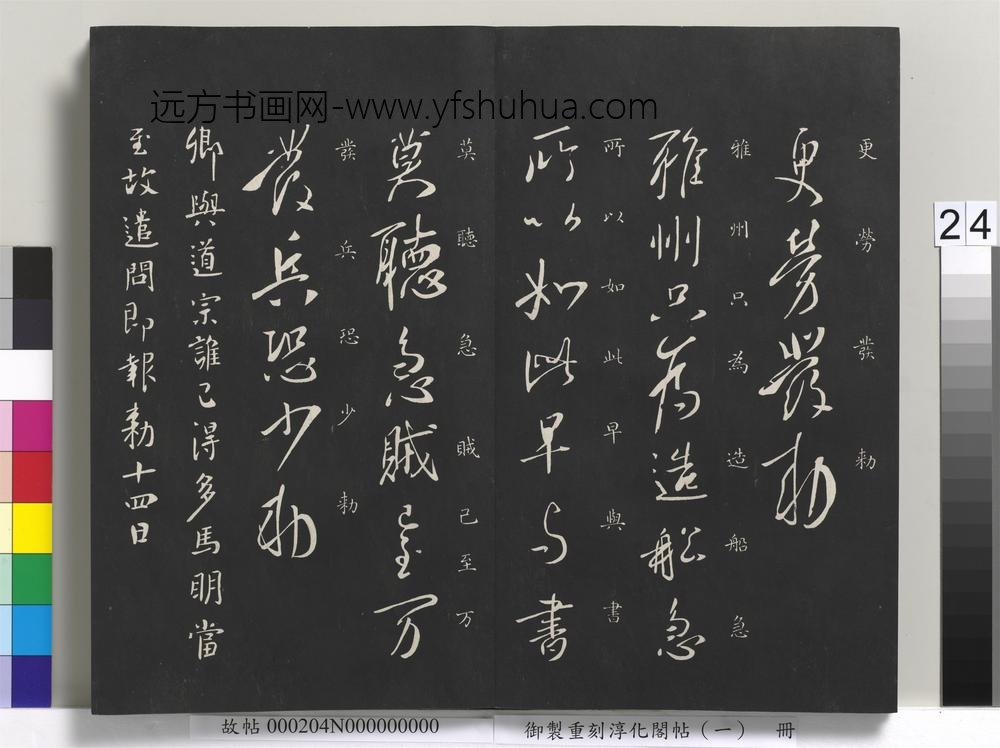 远方书画网-www.yfshuhua.com
更勞發勅
更勞發勅
雅州只為造船急
雅州只為造船急
所以如此早與書
所以如此早与書
莫聽急賊已至万
莫聽急賊已至万
發兵恐少勅
發兵恐少勅
卿與道宗誰已得多馬明當
至故遣問即報勅十四日
24
故帖 000204N000000000
御製重刻淳化閣帖（一） 冊